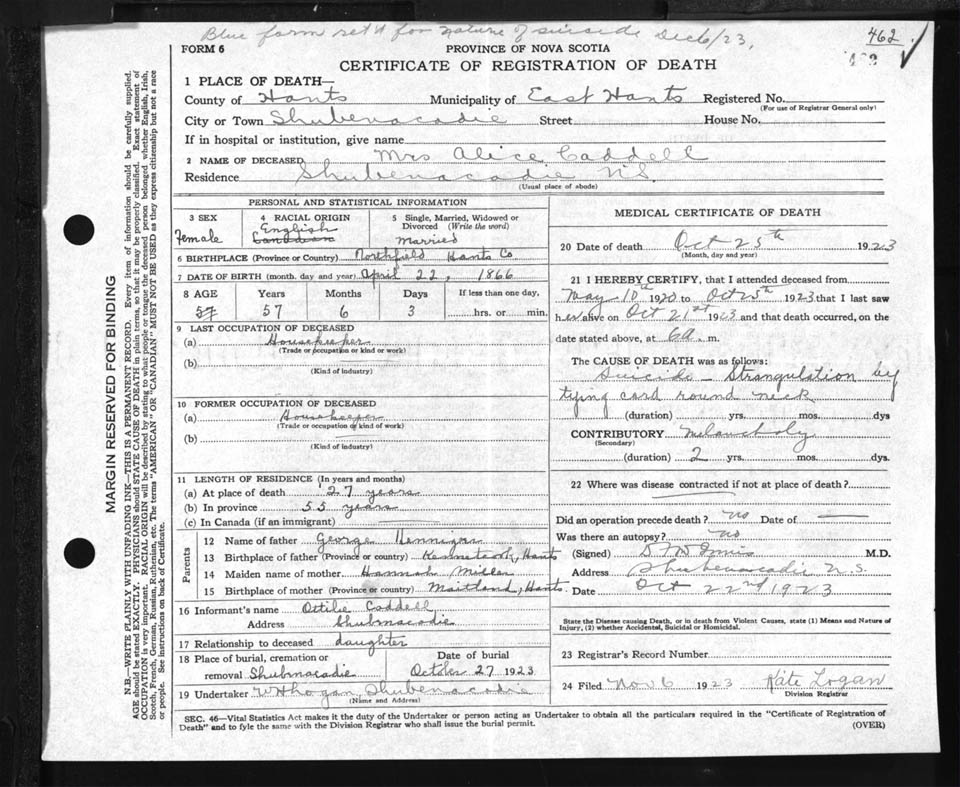 Blue form set u for nature of suicide Dec 6/23,
462
FORM 6
PROVINCE OF NOVA SCOTIA
CERTIFICATE OF REGISTRATION OF DEATH
1 PLACE OF DEATH—
County of Hants Municipality of East Hants Registered No.
(For use of Registrar General only)
City or Town Shubenacadie Street House No.
If in hospital or institution, give name
2 NAME OF DECEASED Mrs Alice Caddell
Residence Shubenacadie N.S.
(Usual place of abode)
PERSONAL AND STATISTICAL INFORMATION
3 SEX
Female
4 RACIAL ORIGIN
English
Canadian
5 Single, Married, Widowed or Divorced (Write the word)
Married
6 BIRTHPLACE (Province or Country) Northfield Hants Co
7 DATE OF BIRTH (month, day and year) April 22, 1866
8 AGE Years Months Days If less than one day,
57 57 6 3 hrs. or min.
9 LAST OCCUPATION OF DECEASED
(a) Housekeeper
(Trade or occupation or kind or work)
(b)
(Kind of industry)
10 FORMER OCCUPATION OF DECEASED
(a) Housekeeper
(Trade or occupation of kind of work)
(b)
(Kind of industry)
11 LENGTH OF RESIDENCE (In years and months)
(a) At place of death 27 years
(b) In province 55 years
(c) In Canada (if an immigrant)
Parents
12 Name of father George Hennigar
13 Birthplace of father (Province or country) Kennetcook, Hants
14 Maiden name of mother Hannah Miller
15 Birthplace of mother (Province or country) Maitland, Hants
16 Informant's name Ottilie Caddell
Address Shubnacadie
17 Relationship to deceased daughter
18 Place of burial, cremation or Date of burial
removal Shubnacadie October 27 1923
19 Undertaker W H Logan, Shubenacadie
(Name and Address)
MEDICAL CERTIFICATE OF DEATH
20 Date of death Oct 25th 1923
(Month, day and year)
21 I HEREBY CERTIFY, that I attended deceased from
May 10th 1920 to Oct 25th 1923 that I last saw
her alive on Oct 21st 1923 and that death occurred, on the
date stated above, at 6 a. m.
The CAUSE OF DEATH was as follows:
Suicide – Strangulation by
tying cord round neck
(duration) yrs. mos. dys
CONTRIBUTORY Melancholy
(Secondary)
(duration) 2 yrs. mos. dys.
22 Where was disease contracted if not at place of death?
Did an operation precede death? no Date of —
Was there an autopsy? no
(Signed) M.D.
Address Shubenacadie N.S.
Date Oct 22nd 1923
State the Disease causing Death, or in death from Violent Causes, state (1) Means and Nature of
Injury, (2) whether Accidental, Suicidal or Homicidal.
23 Registrar's Record Number
24 Filed Nov 6 1923 Kate Logan
Division Registrar
SEC. 46—Vital Statistics Act makes it the duty of the Undertaker or person acting as Undertaker to obtain all the particulars required in the "Certificate of Registration of
Death" and to fyle the same with the Division Registrar who shall issue the burial permit. (OVER)
MARGIN RESERVED FOR BINDING
N.B.—WRITE PLAINLY WITH UNFADING INK—THIS IS A PERMANENT RECORD. Every item of information should be carefully supplied.
AGE should be stated EXACTLY. PHYSICIANS should STATE CAUSE OF DEATH in plain terms, so that it may be properly classified. Exact statement of
OCCUPATION is very important. RACIAL ORIGIN will be described by stating to what people or tongue the deceased person belonged whether English, Irish,
Scotch, French, German, Russian, Ruthenian, etc. The terms "AMERICAN" OR "CANADIAN" MUST NOT BE USED as they express citizenship but not a race
or people. See instructions on back of Certificate.